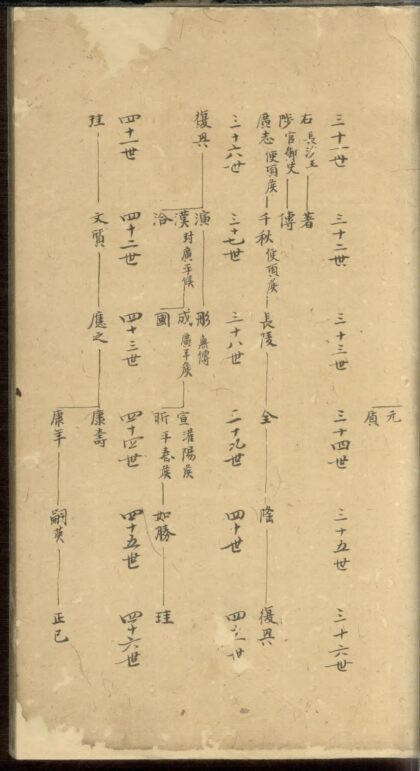 元
三十一世 三十二世 三十三世 三十四世 三十五世 三十六世
右長沙王 著
陟官御史 傅
廣志 便頃侯 千秋 便頃侯 長陵 全 隆 復興
三十六世 三十七世 三十八世 二十九世 四十世 四十一世
復興 演 彤 無傳
漢 封廣平候 成 廣平侯 宣 灌陽侯
洽 國 昕 平春侯 如勝 珪
四十一世 四十二世 四十三世 四十四世 四十五世 四十六世
珪 文質 應之 康壽
康年 嗣英 正己